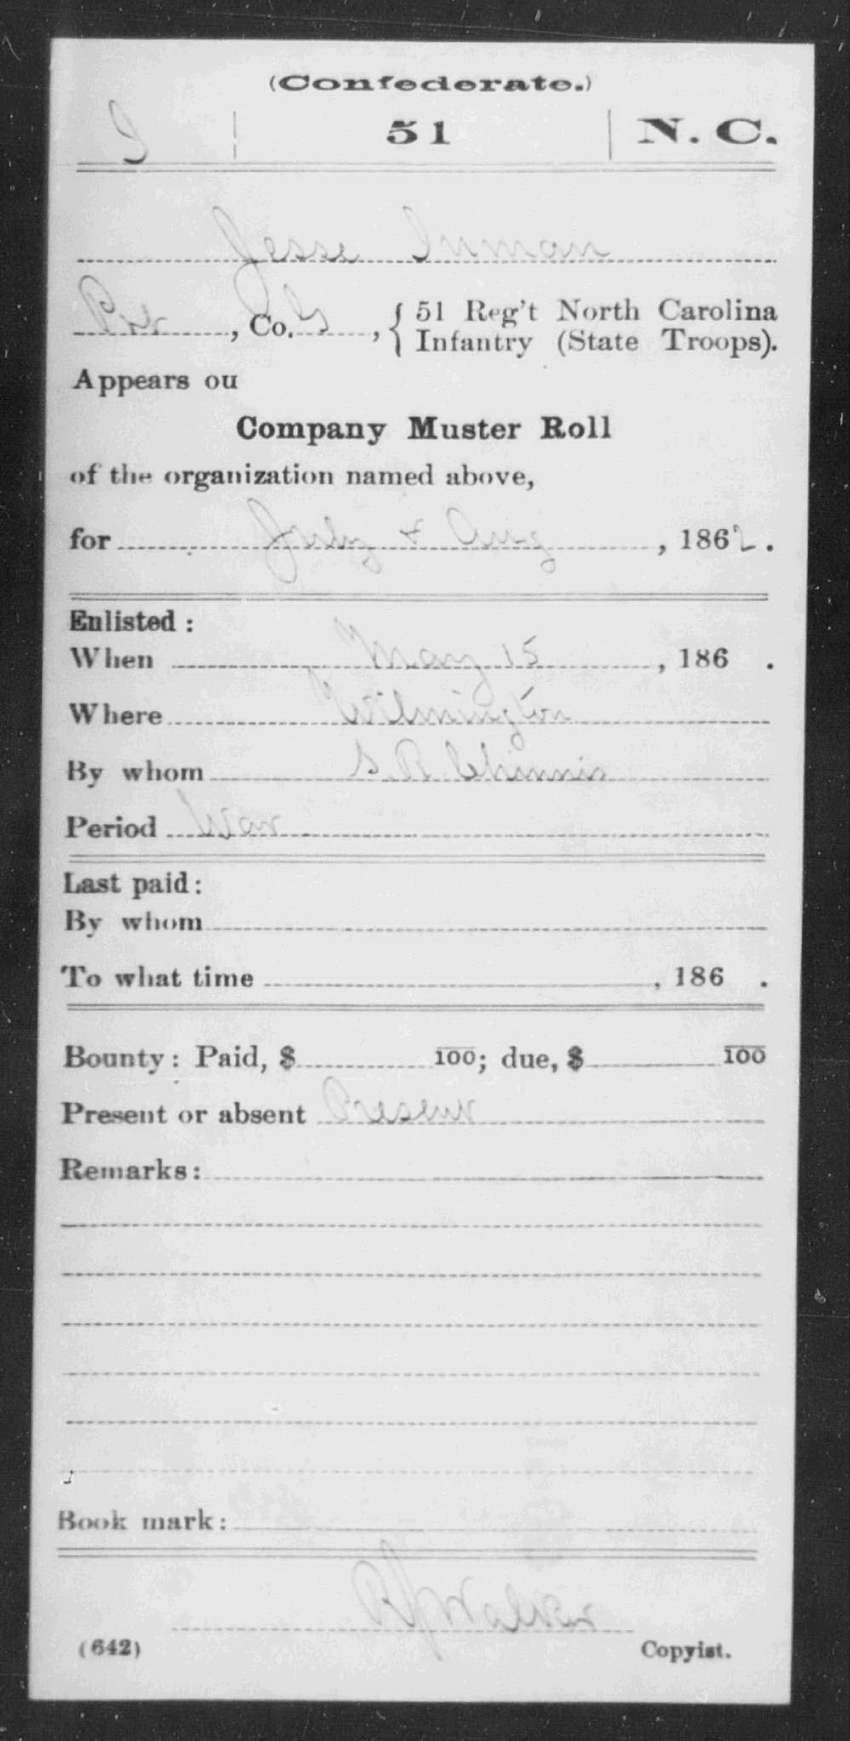 (Confederate.)
I | 51 | N. C.
Jesse Inman
Pvt, Co. G, { 51 Reg't North Carolina
Infantry (State Troops).
Appears on
Company Muster Roll
of the organization named above,
for July & Aug, 1862.
Enlisted:
When May 15, 186 .
Where Wilmington
By whom S. R. Chinnis
Period War
Last paid:
By whom
To what time , 186 .
Bounty: Paid, $ 100; due, $ 100
Present or absent Present
Remarks:
Book mark:
R J Walker
(642) Copyist.